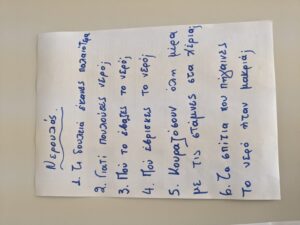 Νερουλάς
1. Τι δουλειά έκανες παλαιότερα
2. Γιατί πουλούσες νερό;
3. Πού το έβαζες το νερό;
4. Πού έβρισκες το νερό;
5. Κουραζόσουν όλη μέρα
με τις στάμνες στα χέρια;
6. Τα σπίτια που πήγαινες
το νερό ήταν μακριά;